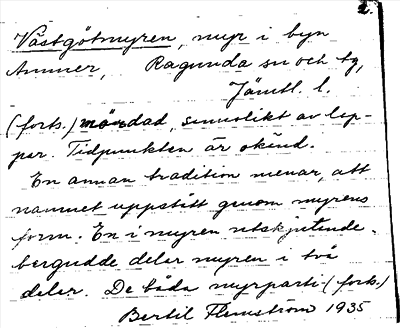 2.
Västgötmyren, myr i byn
Ammer, Ragunda sn och tg,
Jämtl. l.
(forts.) mördad, sannolikt av lap-
par. Tidpunkten är okänd.
En annan tradition menar, att
namnet uppstått genom myrens
form. En i myren utskjutande
bergudde delar myren i två
delar. De båda myrparti (forts.)
Bertil Flemström 1935